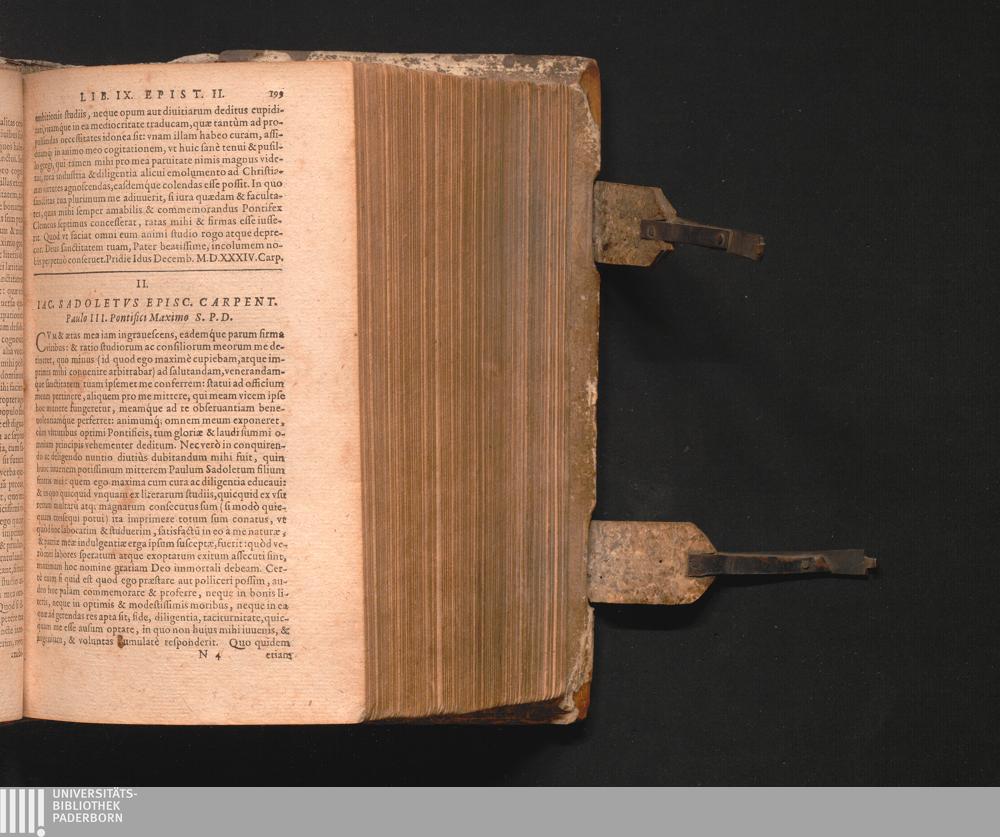 LIB. IX. EPIST. II. 199
ambitionis studiis, neque opum aut diuitiarum deditus cupidi-
tati, vitamque in ea mediocritate traducam, quæ tantùm ad pro-
pulsandas necessitates idonea sit: vnam illam habeo curam, assi-
duamq; in animo meo cogitationem, vt huic sanè tenui & pusil-
lo gregi, qui tamen mihi pro mea paruitate nimis magnus vide-
tur, mea industria & diligentia alicui emolumento ad Christia-
nas virtutes agnoscendas, easdemque colendas esse possit. In quo
sanctitas tua plurimum me adiuuerit, si iura quædam & faculta-
tes, quas mihi semper amabilis & commemorandus Pontifex
Clemens septimus concesserat, ratas mihi & firmas esse iusse-
rit. Quod vt faciat omni eum animi studio rogo atque depre-
cor. Deus sanctitatem tuam, Pater beatissime, incolumem no-
bis perpetuò conseruet. Pridie Idus Decemb. M.D.XXXIV. Carp.
II.
IAC. SADOLETVS EPISC. CARPENT.
Paulo III. Pontifici Maximo S. P. D.
CVM & ætas mea iam ingrauescens, eademque parum firma
viribus: & ratio studiorum ac consiliorum meorum me de-
tineret, quo minus (id quod ego maximè cupiebam, atque im-
primis mihi conuenire arbitrabar) ad salutandam, venerandam-
que sanctitatem tuam ipsemet me conferrem: statui ad officium
meum pertinere, aliquem pro me mittere, qui meam vicem ipse
hoc munere fungeretur, meamque ad te obseruantiam bene-
uolentiamque perferret: animumq; omnem meum exponeret,
cùm virtutibus optimi Pontificis, tum gloriæ & laudi summi o-
mnium principis vehementer deditum. Nec verò in conquiren-
do ac deligendo nuntio diutiùs dubitandum mihi fuit, quin
hunc iuuenem potissimum mitterem Paulum Sadoletum filium
fratris mei: quem ego maxima cum cura ac diligentia educaui:
& in quo quicquid vnquam ex literarum studiis, quicquid ex vsu
rerum multarū atq; magnarum consecutus sum (si modò quic-
quam consequi potui) ita imprimere totum sum conatus, vt
quòd hoc laborarim & studuerim, satisfactū in eo à me naturæ,
& patriæ meæ indulgentiæ erga ipsum susceptæ, fuerit: quòd ve-
rò mei labores speratum atque exoptatum exitum assecuti sint,
maximam hoc nomine gratiam Deo immortali debeam. Cer-
tè enim si quid est quod ego præstare aut polliceri possim, au-
deo hoc palam commemorare & proferre, neque in bonis li-
teris, neque in optimis & modestissimis moribus, neque in ea
quæ ad gerendas res apta sit, fide, diligentia, taciturnitate, quic-
quam me esse ausum optare, in quo non huius mihi iuuenis, &
ingenium, & voluntas cumulatè responderit. Quo quidem
N 4 etiam
UNIVERSITÄTS-
BIBLIOTHEK
PADERBORN